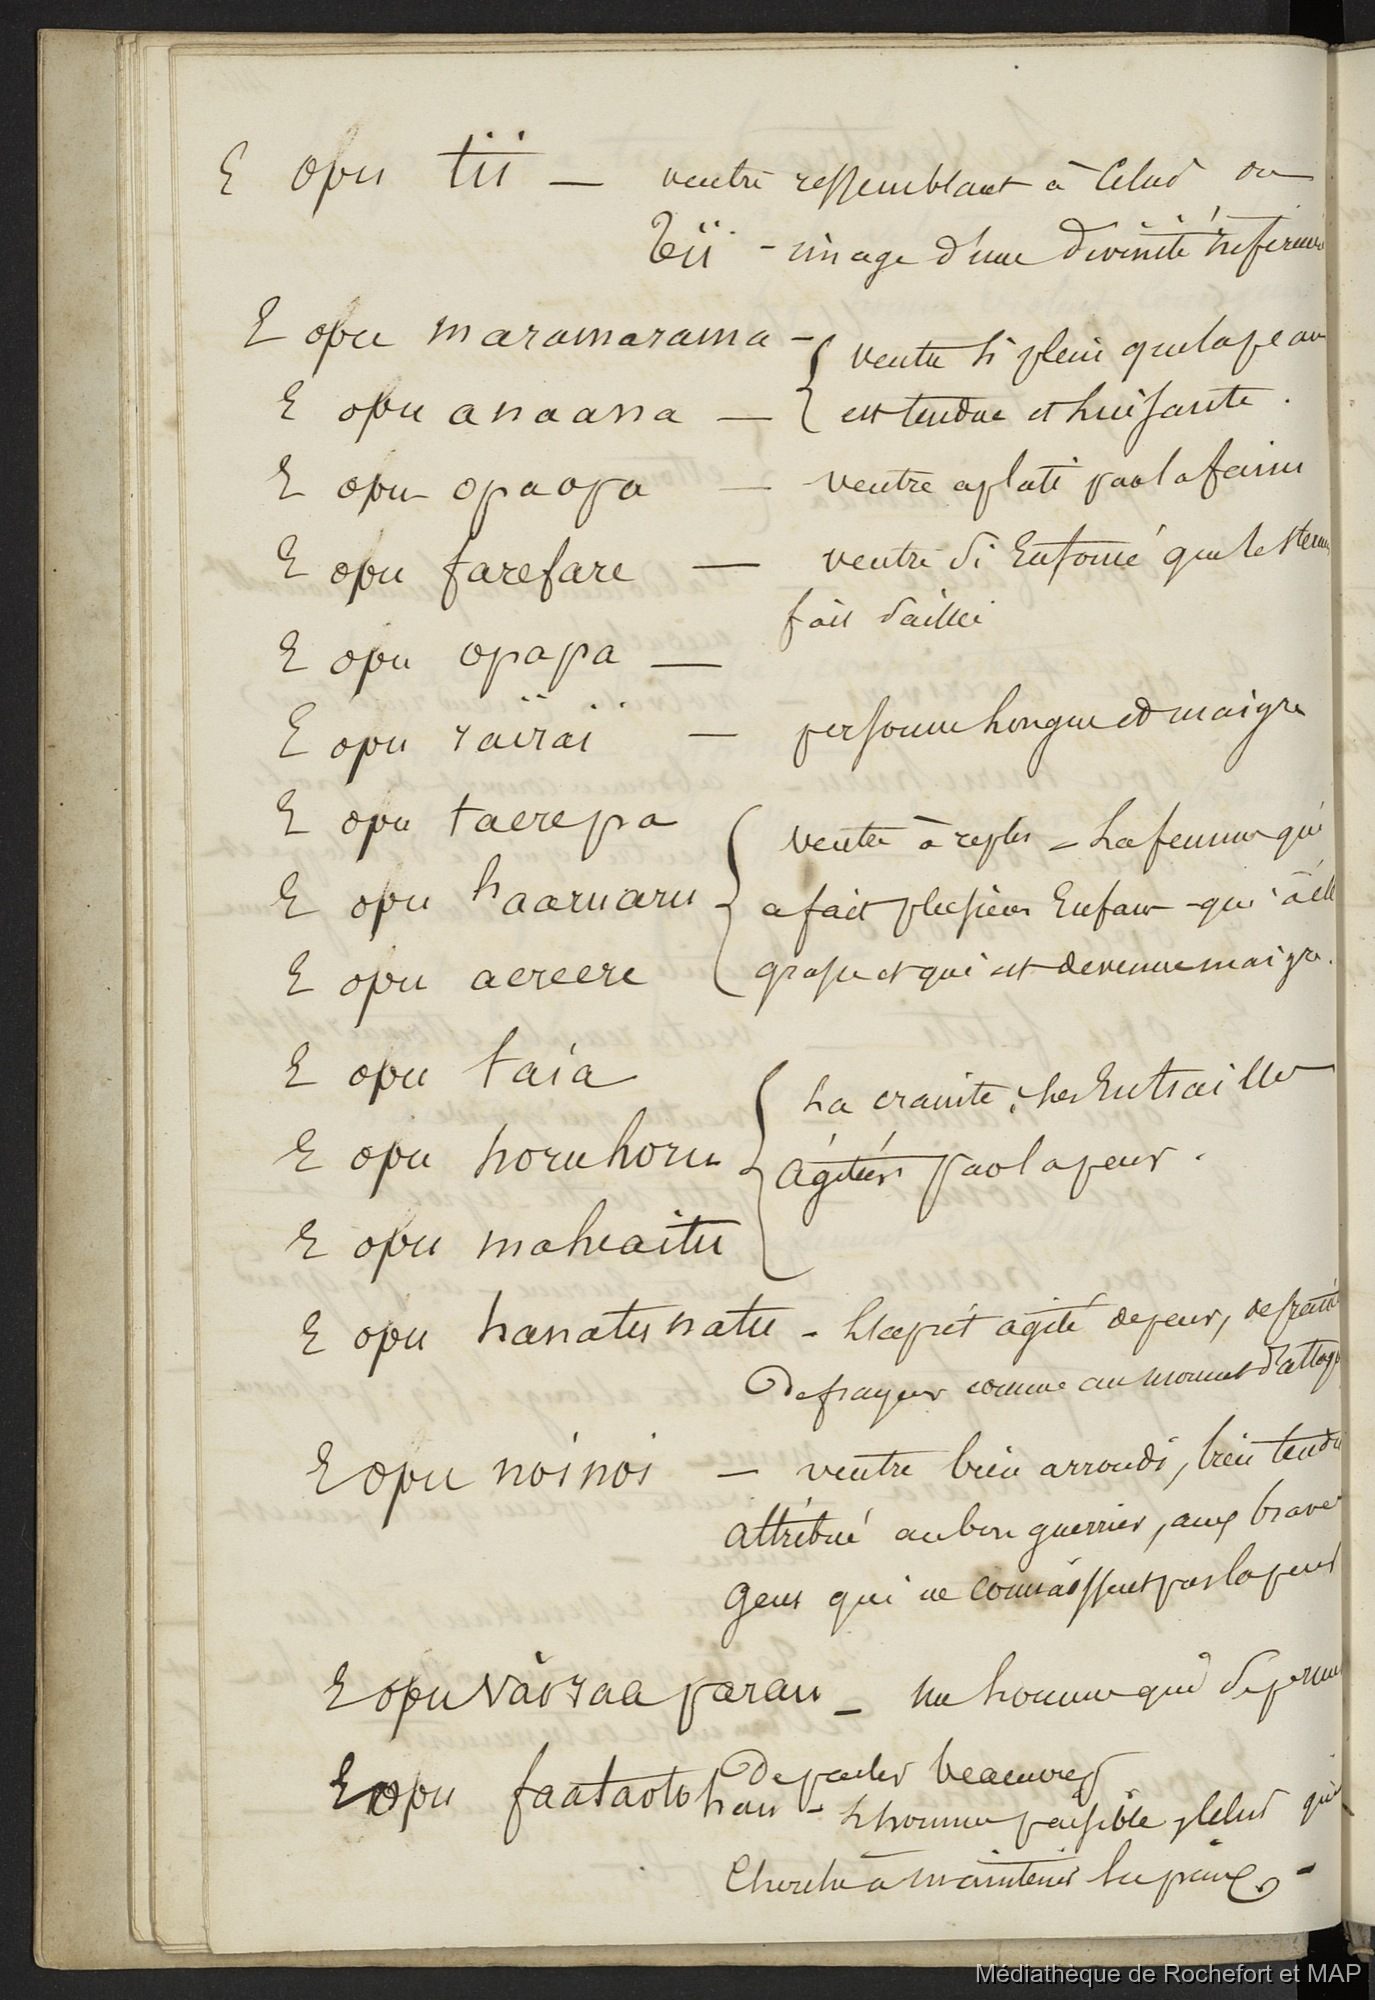 E opu tii — ventre ressemblant à celui du
Tii - image d'une divinité inférieure
E opu maramarama -
ventre si plein que la peau
E opu anaana —
est tendue et luisante.
E opu opaopa — ventre aplati par la faim
E opu farefare — ventre si enfoncé que le sternum
fait saillie
E opu opapa —
E opu rairai — personne longue et maigre
E opu taerepa
ventre à replis = La femme qui
E opu haaruaru
a fait plusieurs Enfans - qui a été
E opu aereere
grasse et qui est devenue maigre.
E opu taia
La crainte; les Entrailles
E opu horuhoru
agitées par la peur.
E opu mahuaitu
E opu hanatunatu - L'esprit agité de peur,
De frayeur comme au moment d'attaque
E opu noinoi — ventre bien arrondi, bien tendu
attribué au bon guerrier, aux braves
gens qui ne connaissent pas la peur
E opu vaoraa parau — un homme qui se permet
De parler beaucoup
E opu faataoto hau - L'homme paisible, celui qui
Cherche à maintenir la paix. -
Médiathèque de Rochefort et MAP